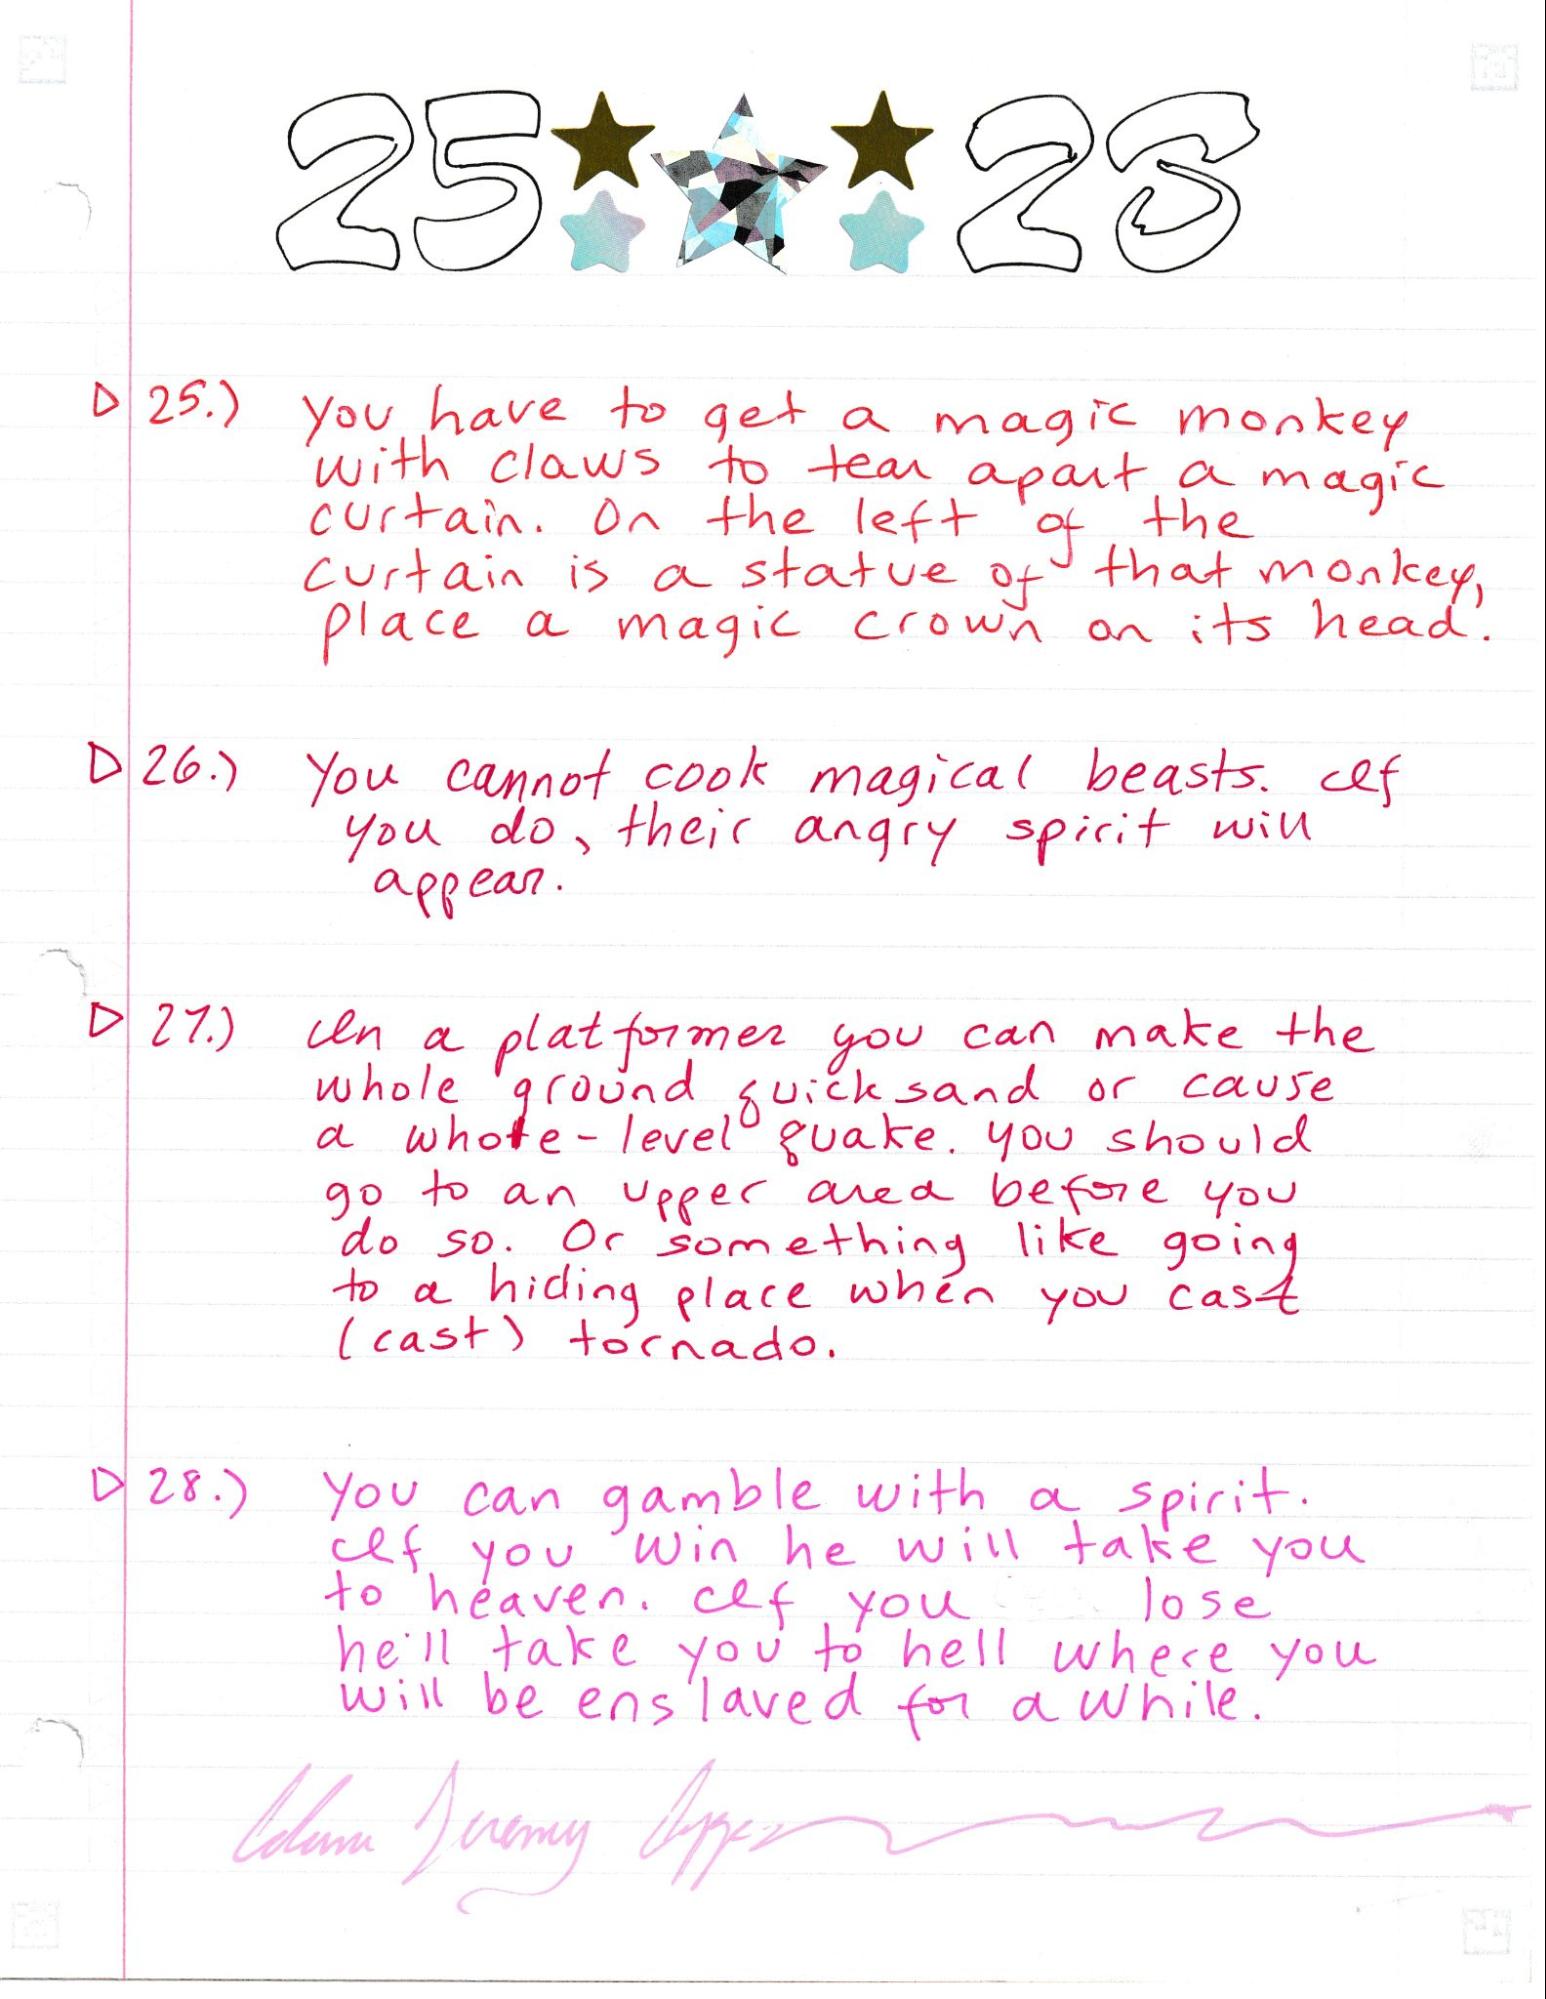 25 28
▷ 25.) You have to get a magic monkey
with claws to tear apart a magic
curtain. On the left of the
curtain is a statue of that monkey,
place a magic crown on its head.
▷ 26.) You cannot cook magical beasts. If
you do, their angry spirit will
appear.
▷ 27.) In a platformer you can make the
whole ground quicksand or cause
a whole-level quake. You should
go to an upper area before you
do so. Or something like going
to a hiding place when you cast
(cast) tornado.
▷ 28.) You can gamble with a spirit.
If you win he will take you
to heaven. If you lose
he'll take you to hell where you
will be enslaved for a while.
Adam Jeremy